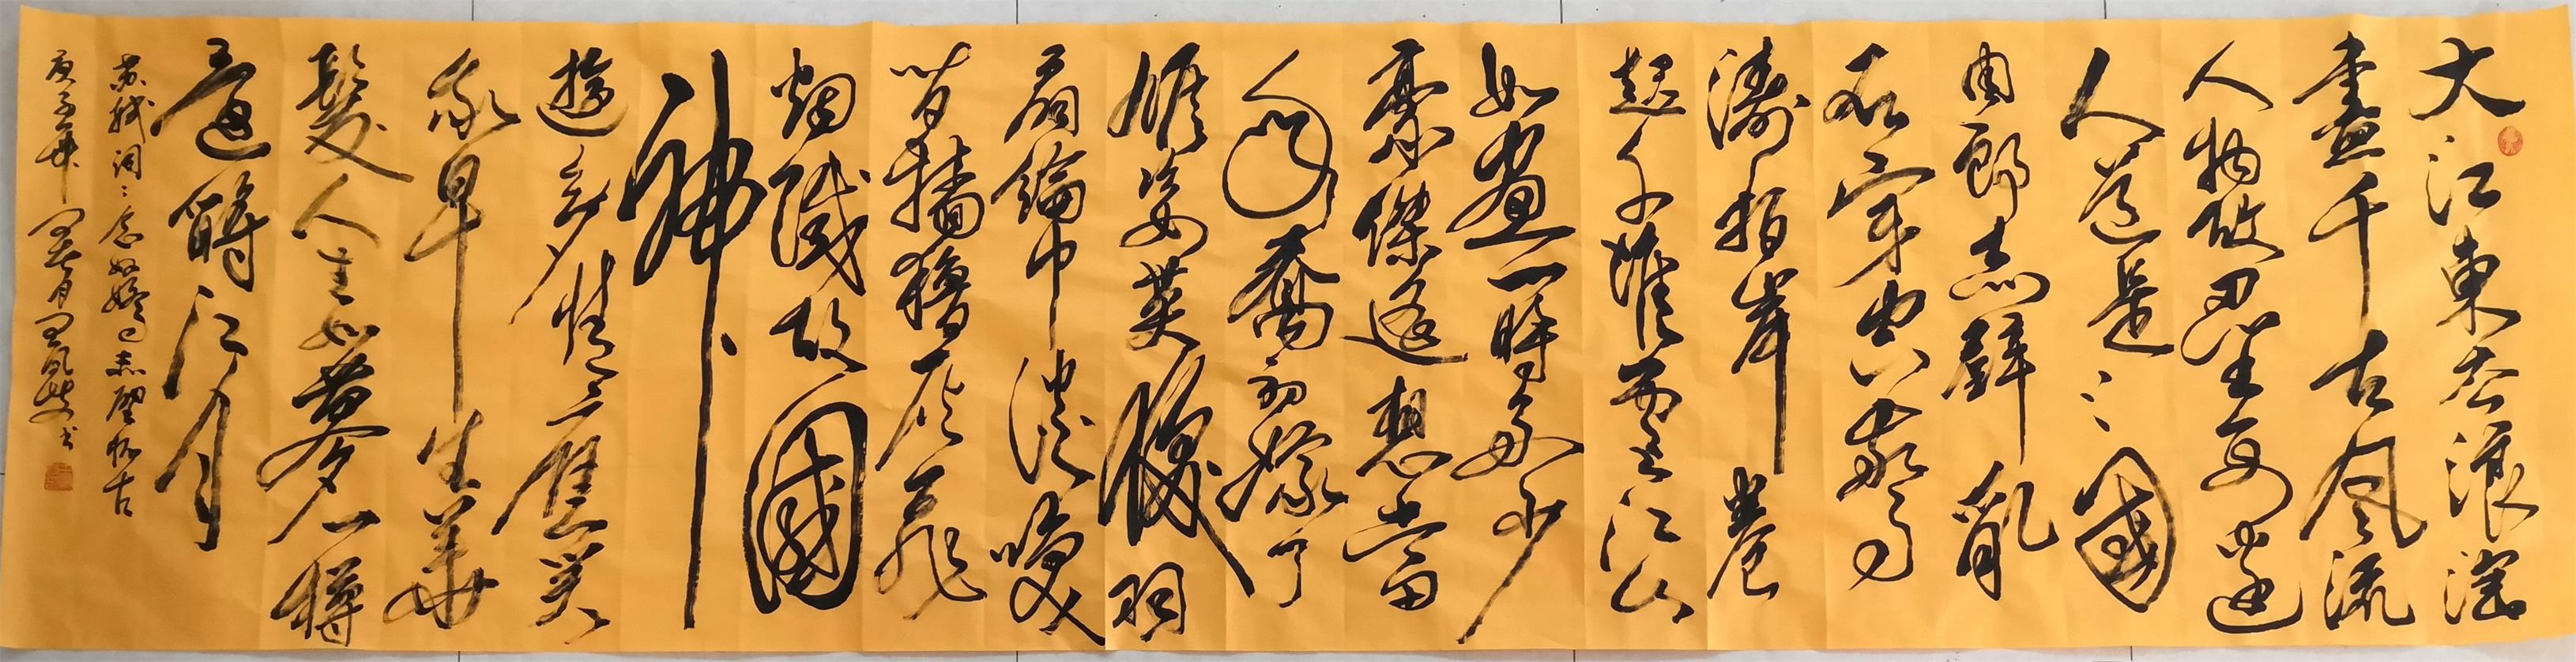 大江東去浪淘
盡千古風流
人物故壘西邊
人道是三國
周郎赤壁亂
石穿空驚
濤拍岸卷
起千堆雪江山
如畫一時多少
豪傑遥想當
年小喬初嫁了
雄姿英發羽
扇綸巾談笑
間檣櫓灰飛
烟滅故國
神
遊多情應笑
我早生華
髮人生如夢一樽
還酹江月
苏轼词念奴嬌赤壁怀古
庚子年月书